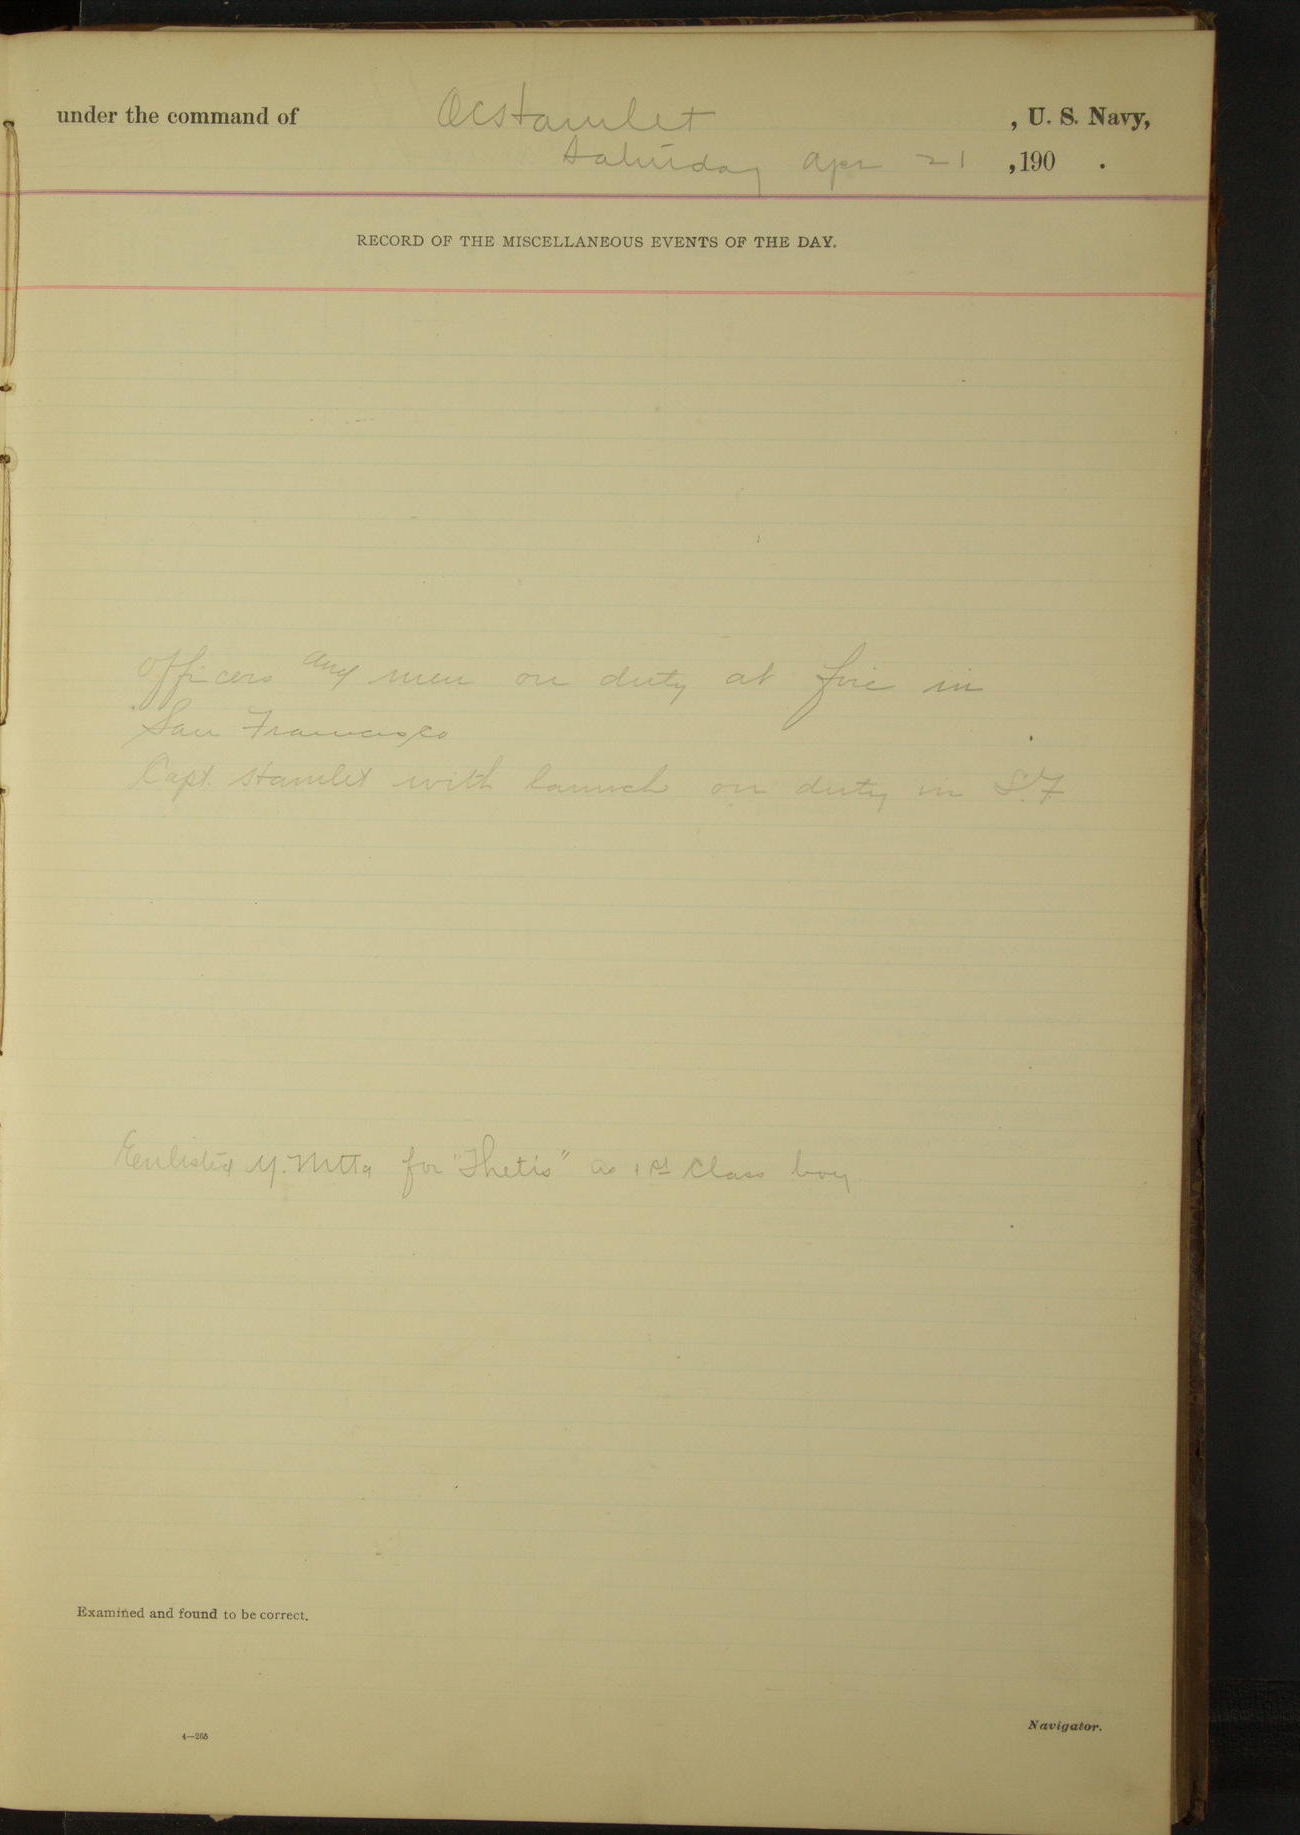 under the command of OCStamlet , U. S. Navy,
Saturday Apr 21 , 190 .
RECORD OF THE MISCELLANEOUS EVENTS OF THE DAY.
Officers and men on duty at fire in
San Francisco
Capt. Hamlet with launch on duty in S.F.
Enlisted Y. for "Thetis" as 1st Class boy
Examined and found to be correct.
4—265
Navigator.